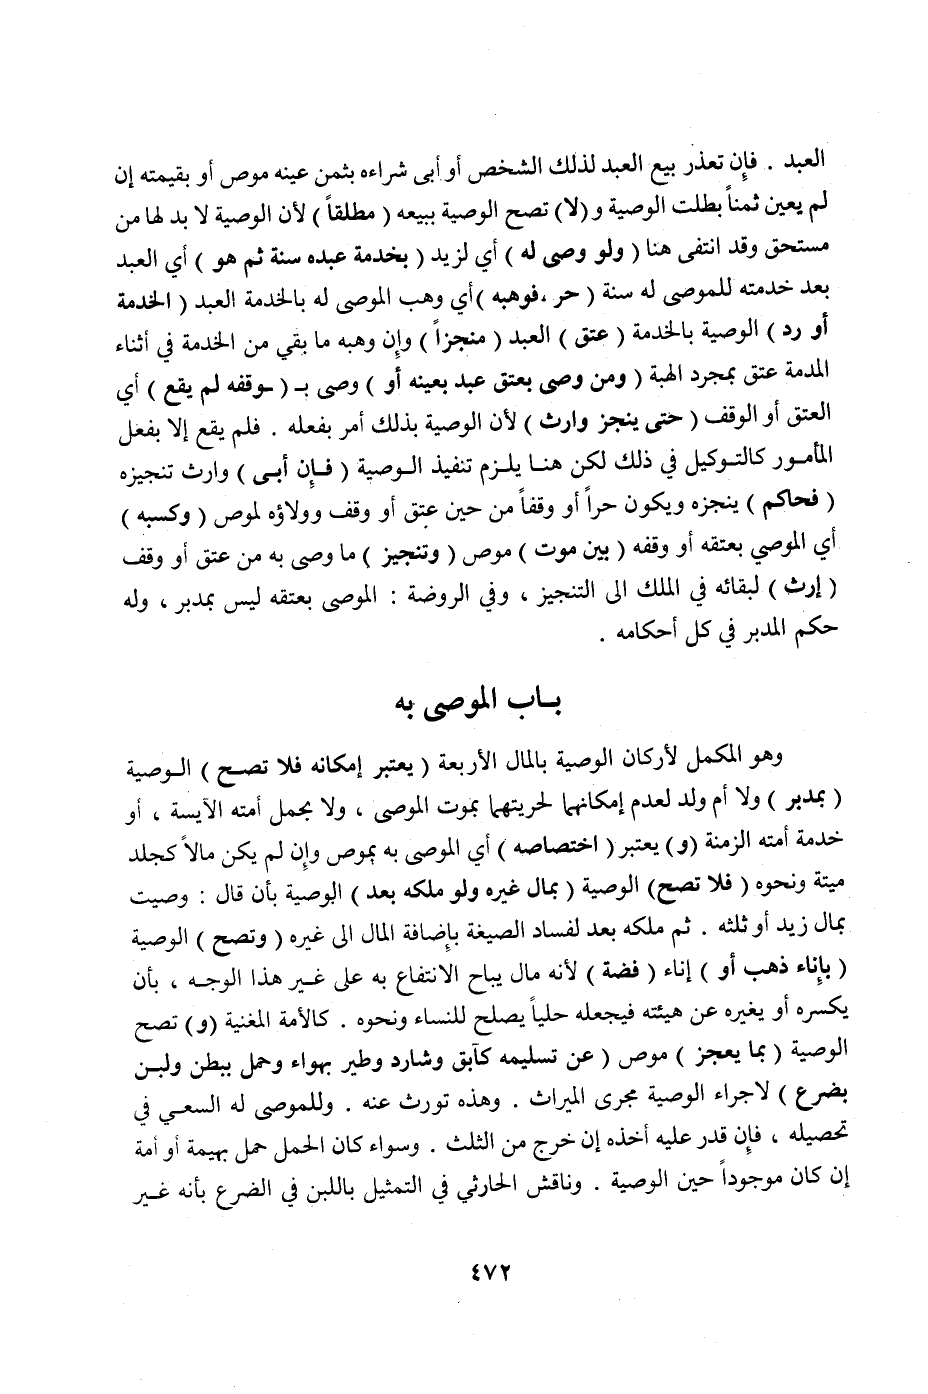 العبد . فإن تعذر بيع العبد لذلك الشخص أو أبى شراءه بثمن عينه موص أو بقيمته إن
لم يعين ثمناً بطلت الوصية و (لا) تصح الوصية ببيعه ( مطلقاً ) لأن الوصية لا بد لها من
مستحق وقد انتفى هنا ( ولو وصى له ) أي لزيد ( بخدمة عبده سنة ثم هو ) أي العبد
بعد خدمته للموصى له سنة ( حر ، فوهبه ) أي وهب الموصى له بالخدمة العبد ( الخدمة
أو رد ) الوصية بالخدمة ( عتق ) العبد ( منجزاً ) وإن وهبه ما بقي من الخدمة في أثناء
المدمة عتق بمجرد الهبة ( ومن وصى بعتق عبد بعينه أو ) وصى بـ ( ـوقفه لم يقع ) أي
العتق أو الوقف ( حتى ينجز وارث ) لأن الوصية بذلك أمر بفعله . فلم يقع إلا بفعل
المأمور كالتوكيل في ذلك لكن هنا يلزم تنفيذ الوصية ( فإن أبى ) وارث تنجيزه
( فحاكم ) ينجزه ويكون حراً أو وقفاً من حين عتق أو وقف وولاؤه لموص ( وكسبه )
أي الموصي بعتقه أو وقفه ( بين موت ) موص ( وتنجيز ) ما وصى به من عتق أو وقف
( إرث ) لبقائه في الملك الى التنجيز ، وفي الروضة : الموصى بعتقه ليس بمدبر ، وله
حكم المدبر في كل أحكامه .
باب الموصى به
وهو المكمل لأركان الوصية بالمال الأربعة ( يعتبر إمكانه فلا تصح ) الوصية
( بمدبر ) ولا أم ولد لعدم إمكانهما لحريتهما بموت الموصى ، ولا بحمل أمته الآيسة ، أو
خدمة أمته الزمنة (و) يعتبر ( اختصاصه ) أي الموصى به بموص وإن لم يكن مالاً كجلد
ميتة ونحوه ( فلا تصح) الوصية ( بمال غيره ولو ملكه بعد ) الوصية بأن قال : وصيت
بمال زيد أو ثلثه . ثم ملكه بعد لفساد الصيغة بإضافة المال الى غيره ( وتصح ) الوصية
( بإناء ذهب أو ) إناء ( فضة ) لأنه مال يباح الانتفاع به على غير هذا الوجه ، بأن
يكسره أو يغيره عن هيئته فيجعله حلياً يصلح للنساء ونحوه . كالأمة المغنية (و) تصح
الوصية ( بما يعجز ) موص ( عن تسليمه كآبق وشارد وطير بهواء وحمل ببطن ولبن
بضرع ) لاجراء الوصية مجرى الميراث . وهذه تورث عنه . وللموصى له السعي في
تحصيله ، فإن قدر عليه أخذه إن خرج من الثلث . وسواء كان الحمل حمل بهيمة أو أمة
إن كان موجوداً حين الوصية . وناقش الحارثي في التمثيل باللبن في الضرع بأنه غير
٤٧٢